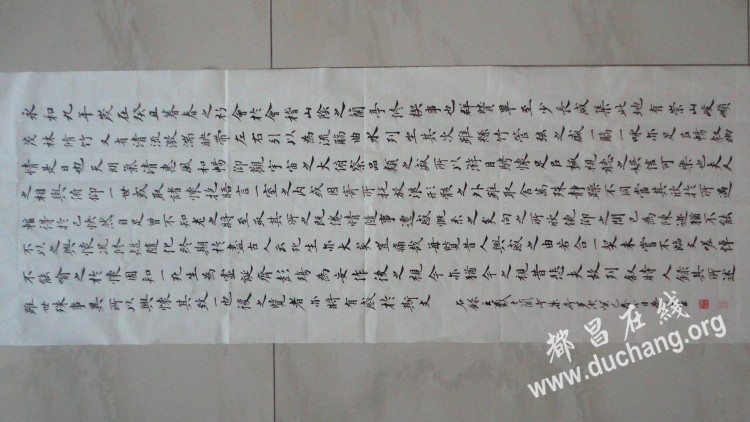 永和九年歲在癸丑暮春之初會於會稽山陰之蘭亭修禊事也群賢畢至少長咸集此地有崇山峻嶺
茂林脩竹又有清流激湍映帶左右引以為流觴曲水列坐其次雖無絲竹管弦之盛一觴一詠亦足以暢敘幽
情是日也天朗氣清惠風和暢仰觀宇宙之大俯察品類之盛所以遊目騁懷足以極視聽之娛信可樂也夫人
之相與俯仰一世或取諸懷抱晤言一室之內或因寄所托放浪形骸之外雖取舍萬殊靜躁不同當其欣於所遇
暫得於己快然自足曾不知老之將至及其所之既倦情隨事遷感慨系之矣向之所欣俛仰之間已為陳迹猶不能
不以之興懷況修短隨化終期於盡古人云死生亦大矣豈痛哉每覽昔人興感之由若合一契未嘗不臨文嗟悼
不能喻之於懷固知一死生為虛誕齊彭殤為妄作後之視今亦猶今之視昔悲夫故列敘時人錄其所述
雖世殊事異所以興懷其致一也後之覽者亦將有感於斯文 右錄王羲之蘭亭集序
都昌在线
www.duchang.org